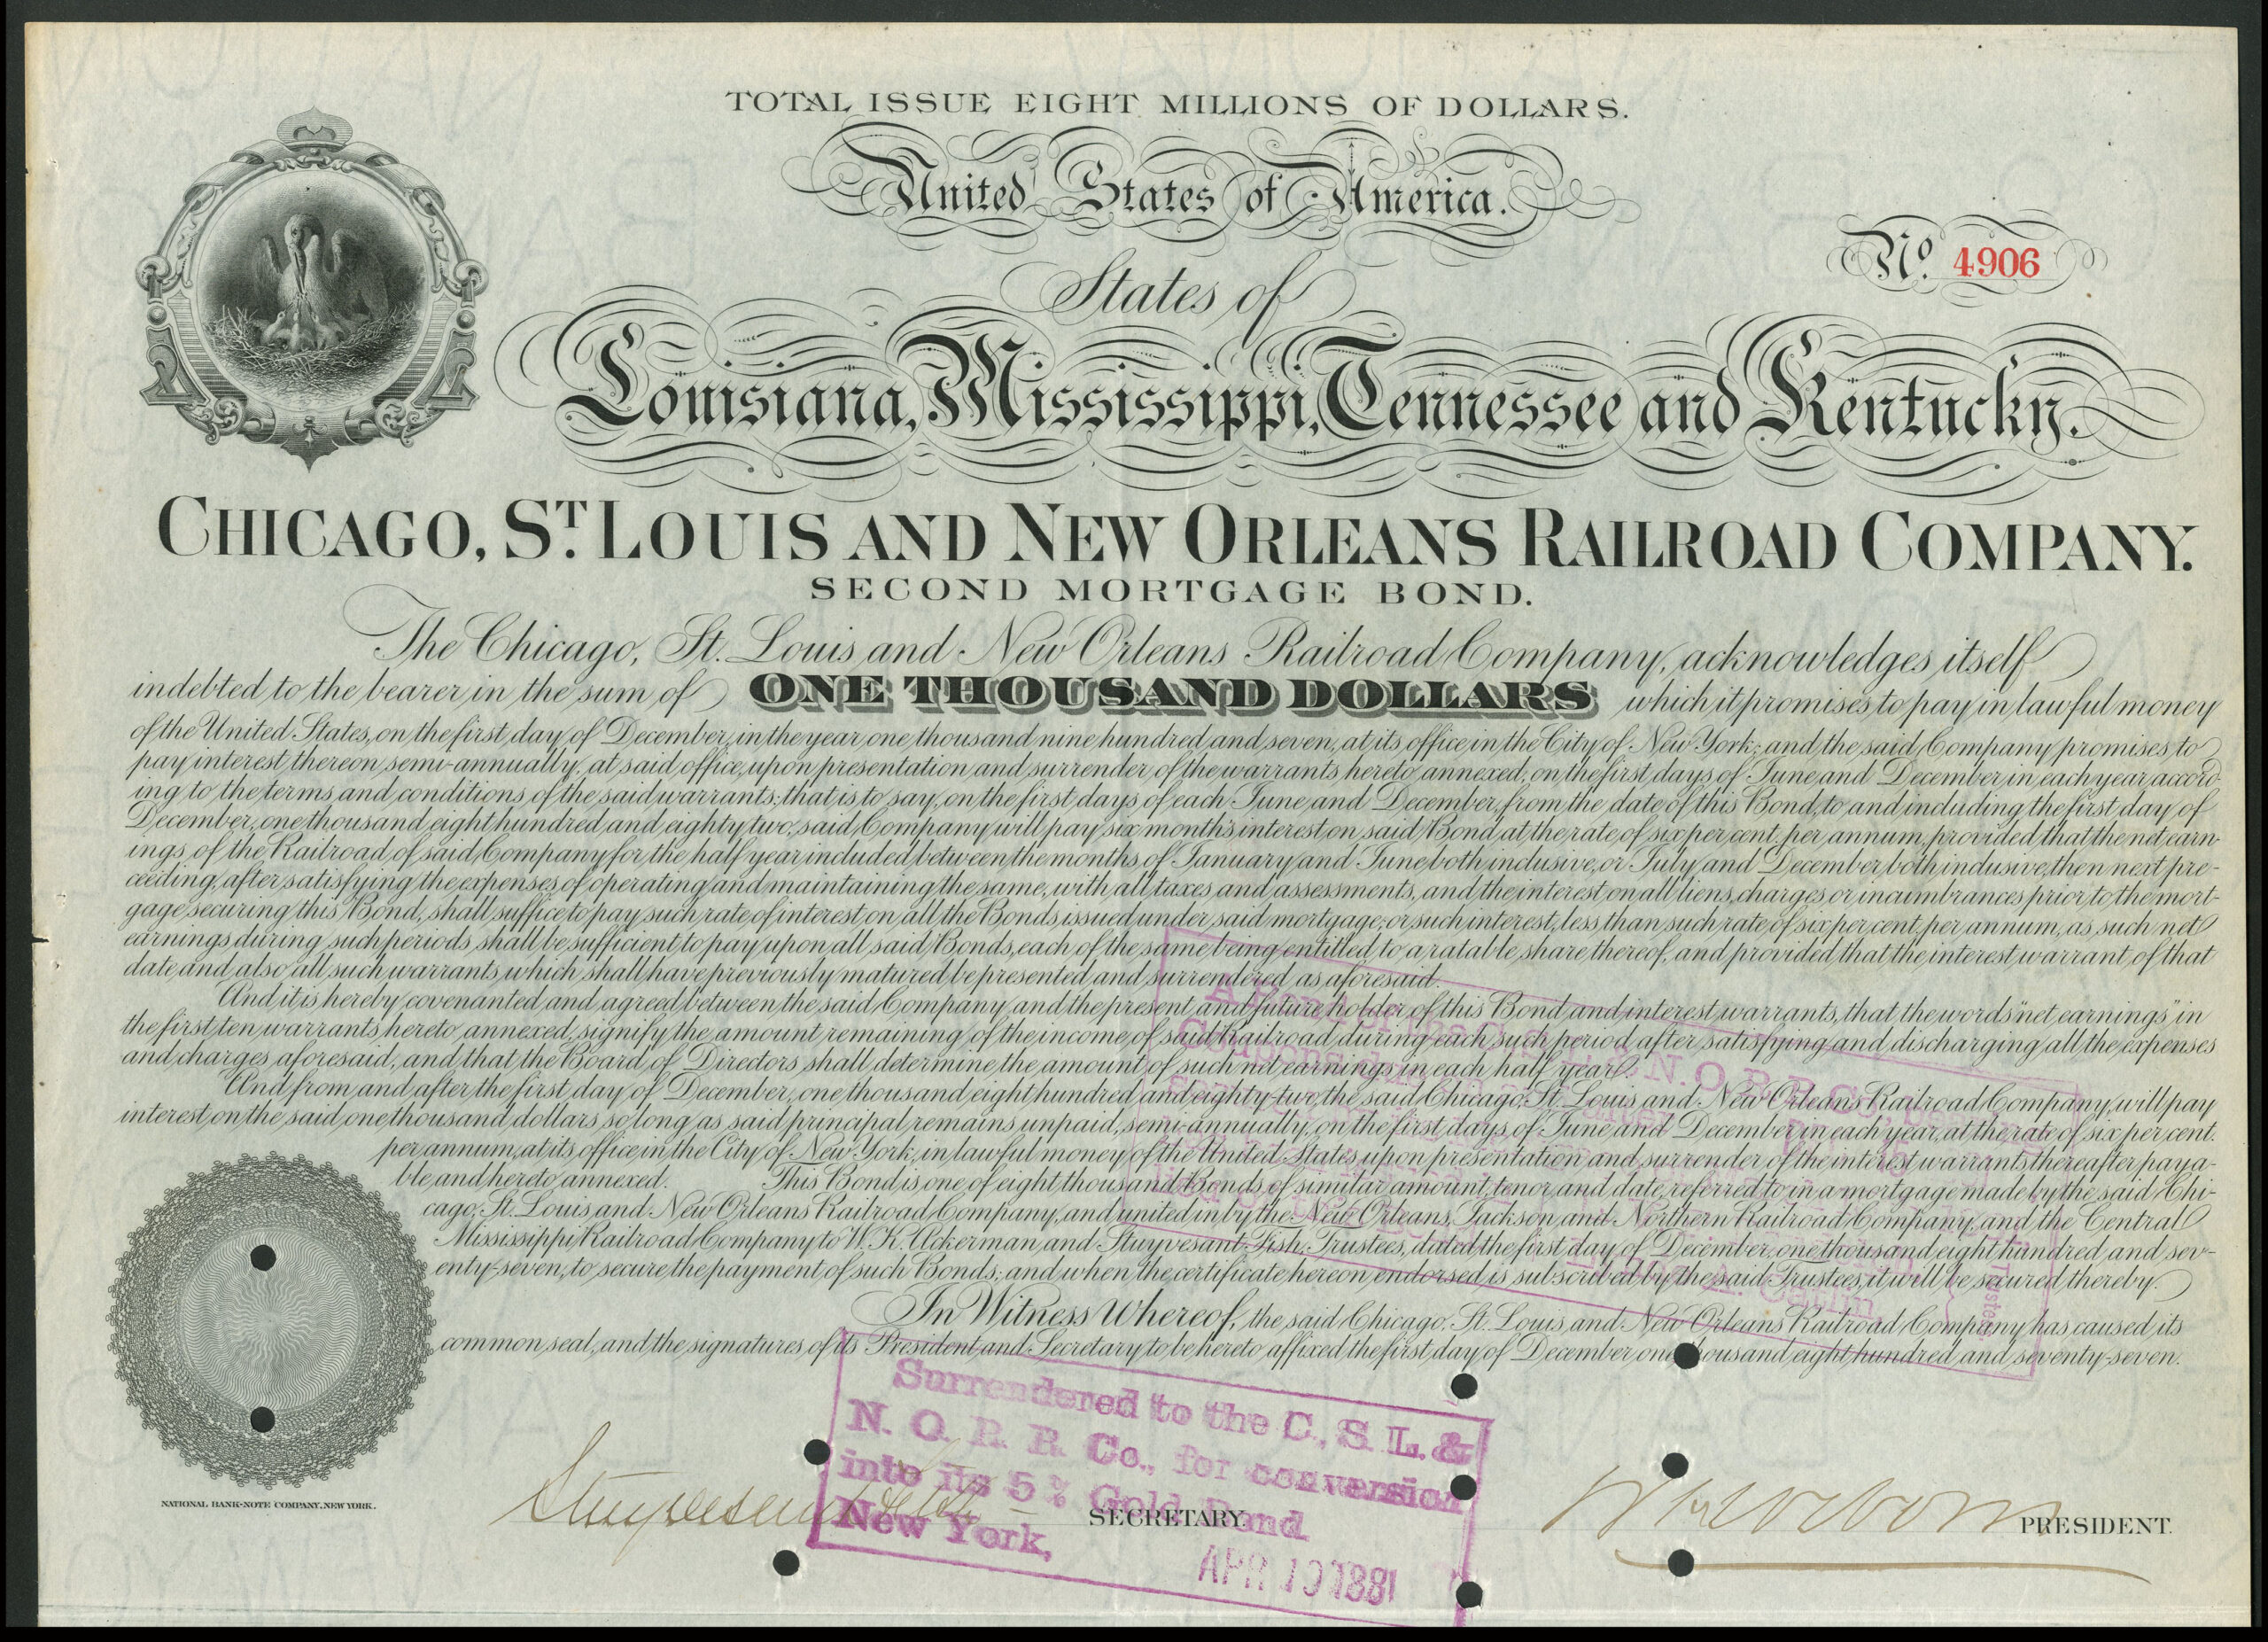 TOTAL ISSUE EIGHT MILLIONS OF DOLLARS.
United States of America.
No. 4906
States of
Louisiana, Mississippi, Tennessee and Kentucky.
CHICAGO, ST. LOUIS AND NEW ORLEANS RAILROAD COMPANY.
SECOND MORTGAGE BOND.
The Chicago, St. Louis and New Orleans Railroad Company, acknowledges itself
indebted to the bearer in the sum of ONE THOUSAND DOLLARS which it promises to pay in lawful money
of the United States, on the first day of December, in the year one thousand nine hundred and seven, at its office in the City of New York; and the said Company promises to
pay interest thereon semi-annually, at said office, upon presentation and surrender of the warrants hereto annexed, on the first days of June and December in each year, accord-
ing to the terms and conditions of the said warrants; that is to say, on the first days of each June and December, from the date of this Bond, to and including the first day of
December, one thousand eight hundred and eighty two, said Company will pay six months interest on said Bond at the rate of six per cent. per annum, provided that the net earn-
ings of the Railroad of said Company for the half year included between the months of January and June both inclusive, or July and December both inclusive, then next pre-
ceeding, after satisfying the expenses of operating and maintaining the same, with all taxes and assessments, and the interest on all liens, charges or incumbrances prior to the mort-
gage securing this Bond, shall suffice to pay such rate of interest on all the Bonds issued under said mortgage; or such interest, less than such rate of six per cent. per annum, as such net
earnings during such periods shall be sufficient to pay upon all said Bonds, each of the same being entitled to a ratable share thereof, and provided that the interest warrant of that
date and also all such warrants which shall have previously matured be presented and surrendered as aforesaid.
And it is hereby covenanted and agreed between the said Company and the present and future holder of this Bond and interest warrants, that the words "net earnings" in
the first ten warrants hereto annexed, signify the amount remaining of the income of said Railroad during each such period after satisfying and discharging all the expenses
and charges aforesaid, and that the Board of Directors shall determine the amount of such net earnings in each half year.
And from and after the first day of December, one thousand eight hundred and eighty-two, the said Chicago, St. Louis and New Orleans Railroad Company, will pay
interest on the said one thousand dollars so long as said principal remains unpaid, semi-annually, on the first days of June and December in each year, at the rate of six per cent.
per annum, at its office in the City of New York, in lawful money of the United States upon presentation and surrender of the interest warrants thereafter paya-
ble and hereto annexed. This Bond is one of eight thousand Bonds of similar amount, tenor, and date, referred to in a mortgage made by the said Chi-
cago, St. Louis and New Orleans Railroad Company, and united in by the New Orleans, Jackson and Northern Railroad Company, and the Central
Mississippi Railroad Company to W. K. Ackerman, and Stuyvesant Fish, Trustees, dated the first day of December, one thousand eight hundred and sev-
enty-seven, to secure the payment of such Bonds; and when the certificate hereon endorsed is subscribed by the said Trustees, it will be secured thereby.
In Witness Whereof, the said Chicago, St. Louis and New Orleans Railroad Company has caused its
common seal, and the signatures of its President and Secretary to be hereto affixed the first day of December one thousand eight hundred and seventy-seven.
Surrendered to the C. S. L. &
N. O. R. R. Co., for conversion
into its 5% Gold Bond
New York,
APR 19 1881
Stuyvesant Fish
SECRETARY
PRESIDENT.
NATIONAL BANK-NOTE COMPANY, NEW YORK.